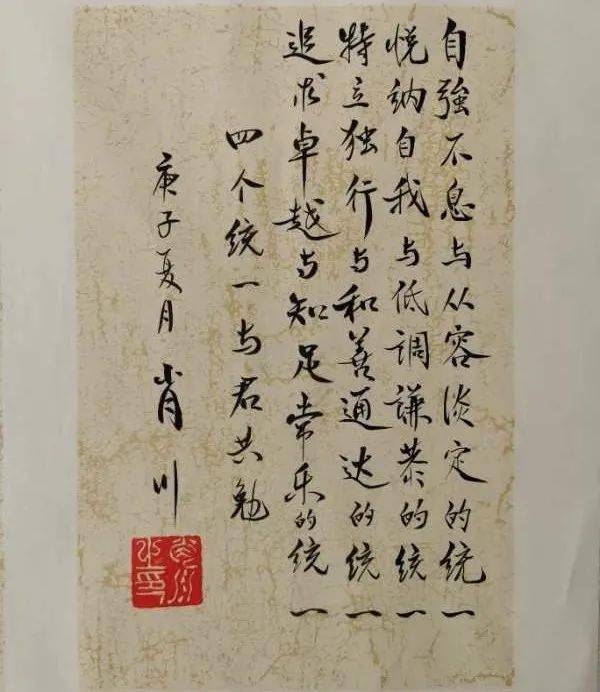 自強不息与从容淡定的统一
悦纳自我与低调谦恭的统一
特立独行与和善通达的统一
追求卓越与知足常乐的统一
四个统一与君共勉
庚子夏月
肖川
肖川之印